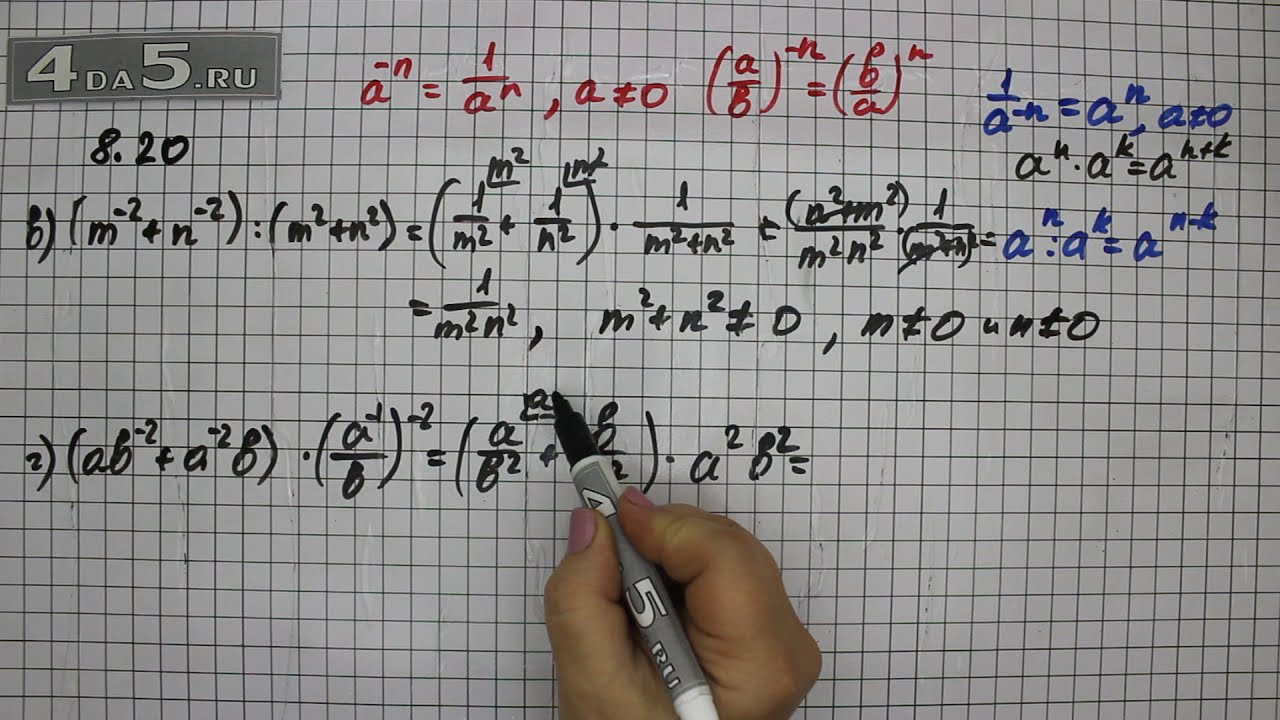 4DA5.RU
a⁻ⁿ = 1/aⁿ, a ≠ 0 (a/b)⁻ⁿ = (b/a)ⁿ
1/a⁻ⁿ = aⁿ, a ≠ 0
8.20
aⁿ · aᵏ = aⁿ⁺ᵏ
в) (m⁻² + n⁻²) : (m² + n²) = (1/m² + 1/n²) · 1/(m² + n²) = (n² + m²)/(m² n²) · 1/(m² + n²) =
aⁿ : aᵏ = aⁿ⁻ᵏ
= 1/(m² n²), m² + n² ≠ 0, m ≠ 0 и n ≠ 0
г) (ab⁻² + a⁻²b) · (a⁻¹/b)⁻² = (a/b² + b/ ²) · a² b² =
5.RU